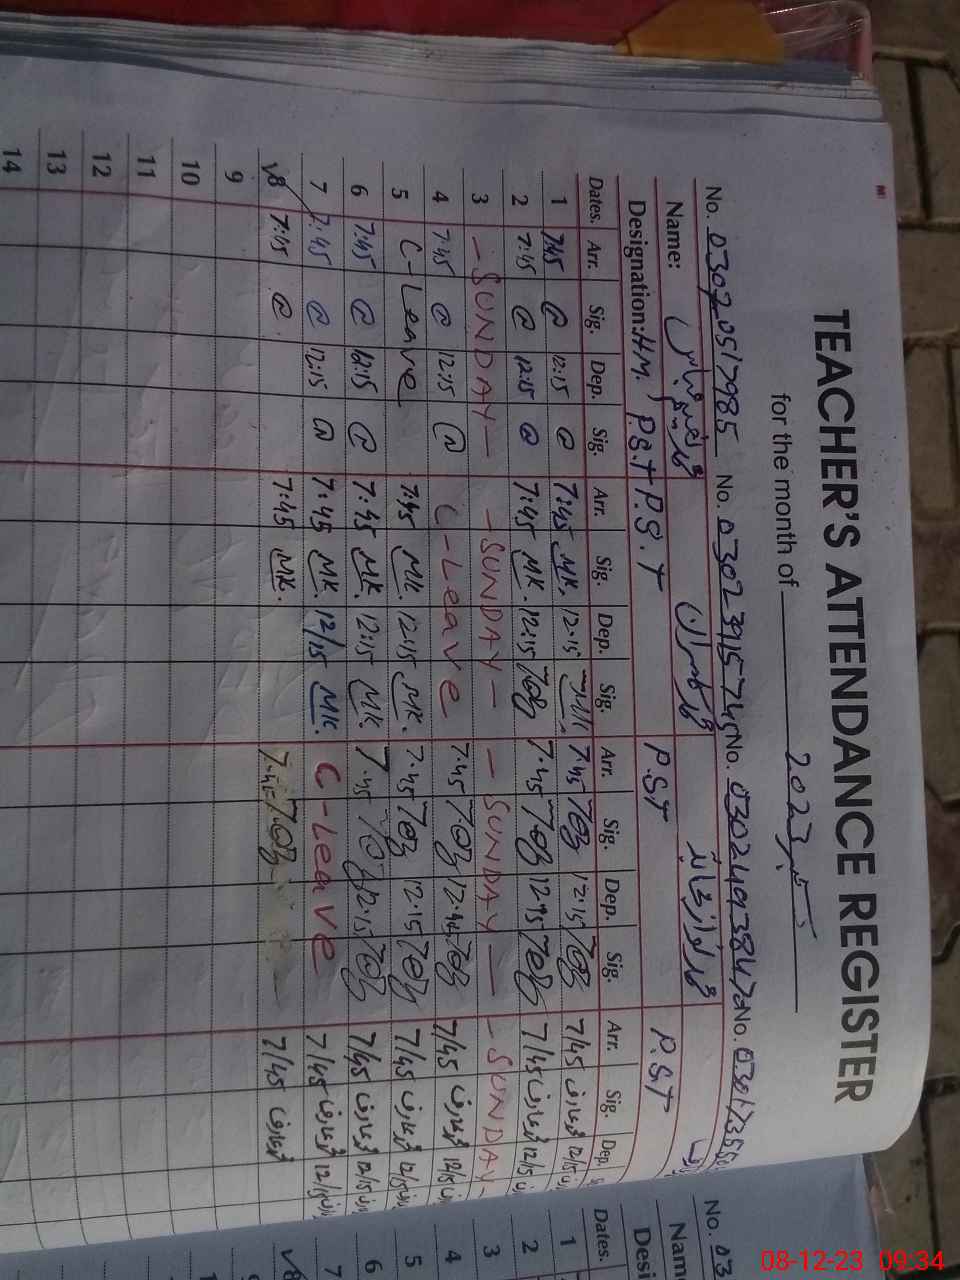 TEACHER'S ATTENDANCE REGISTER
for the month of 2023
No. 03070517985 No. 03023915745 No. 03024938470 No.
Name: محمد کامران محمد نواز
Designation: HM, P.S.T P.S.T P.ST P.S.T
Dates. Arr. Sig. Dep. Sig. Arr. Sig. Dep. Sig. Arr. Sig. Dep. Sig. Arr. Sig. Dep.
1 7:45 @ 12:15 @ 7:45 MK. 12:15 MK. 7:45 12:15 7/45 محمد عارف 12/15
2 7:45 @ 12:15 @ 7:45 MK. 12:15 7:45 7/45 محمد عارف 12/15
3 - SUNDAY - - SUNDAY - - SUNDAY - - SUNDAY -
4 7:45 @ 12:15 @ C-Leave 7:45 7/45 محمد عارف 12/15
5 C-Leave 7:45 MK. 12:15 MK. 7:45 12:15 7/45 محمد عارف 12/15
6 7:45 @ 12:15 @ 7:45 MK. 12:15 MK. 7:45 12:15 7/45 محمد عارف 12/15
7 7:45 @ 12:15 @ 7:45 MK. 12/15 MK. C-Leave 7/45 محمد عارف 12/15
8 7:45 @ 7:45 MK. 7:45 7/45 محمد عارف
9
10
11
12
13
14
No. 03
Name
Desi
Dates.
1
2
3
4
5
6
7
8
08-12-23 09:34